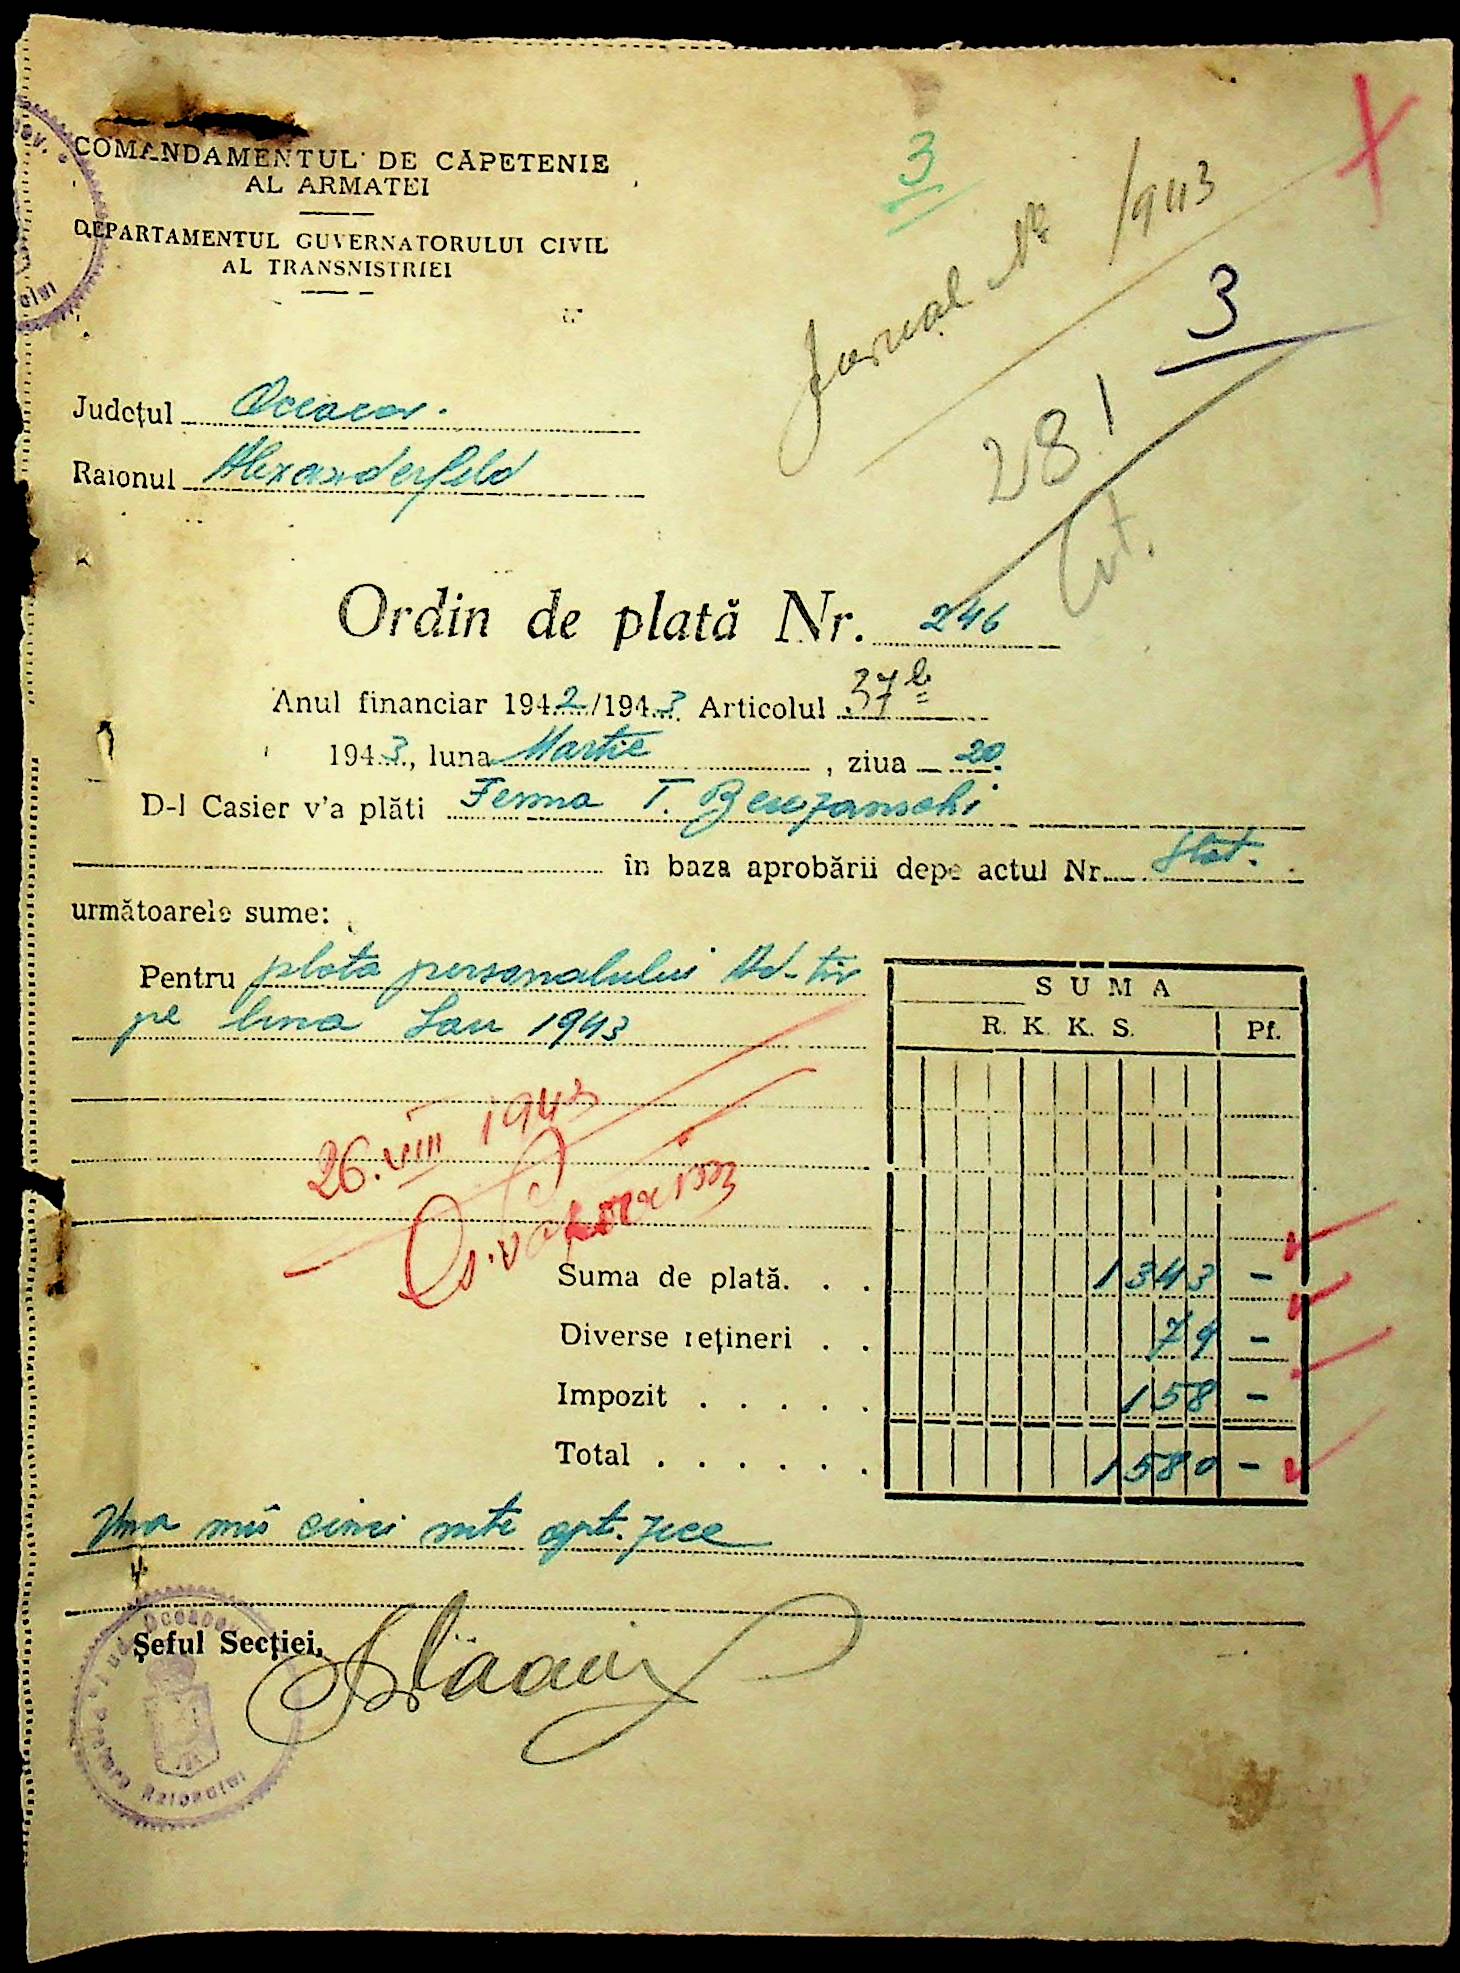 COMANDAMENTUL DE CAPETENIE
AL ARMATEI
DEPARTAMENTUL GUVERNATORULUI CIVIL
AL TRANSNISTRIEI
3
Jurnal Nr /943
3
281
Județul Oceacov.
Raionul Alexanderfeld
Ordin de plată Nr. 246
Anul financiar 1942/1943 Articolul 37 b
1943, luna Martie, ziua 20.
D-l Casier v'a plăti Ferma T. Berezanschi
în baza aprobării depe actul Nr. Stat.
următoarele sume:
Pentru plata personalului Ad-tiv
pe luna Ian 1943
SUMA
R. K. K. S. Pf.
26.VIII 1943
Suma de plată. . . 1343 -
Diverse rețineri . . 79 -
Impozit . . . . . 158 -
Total . . . . . . 1580 -
Una mii cinci sute opt.zece
Șeful Secției,
Jud. Oceacov
Pretura Raionului